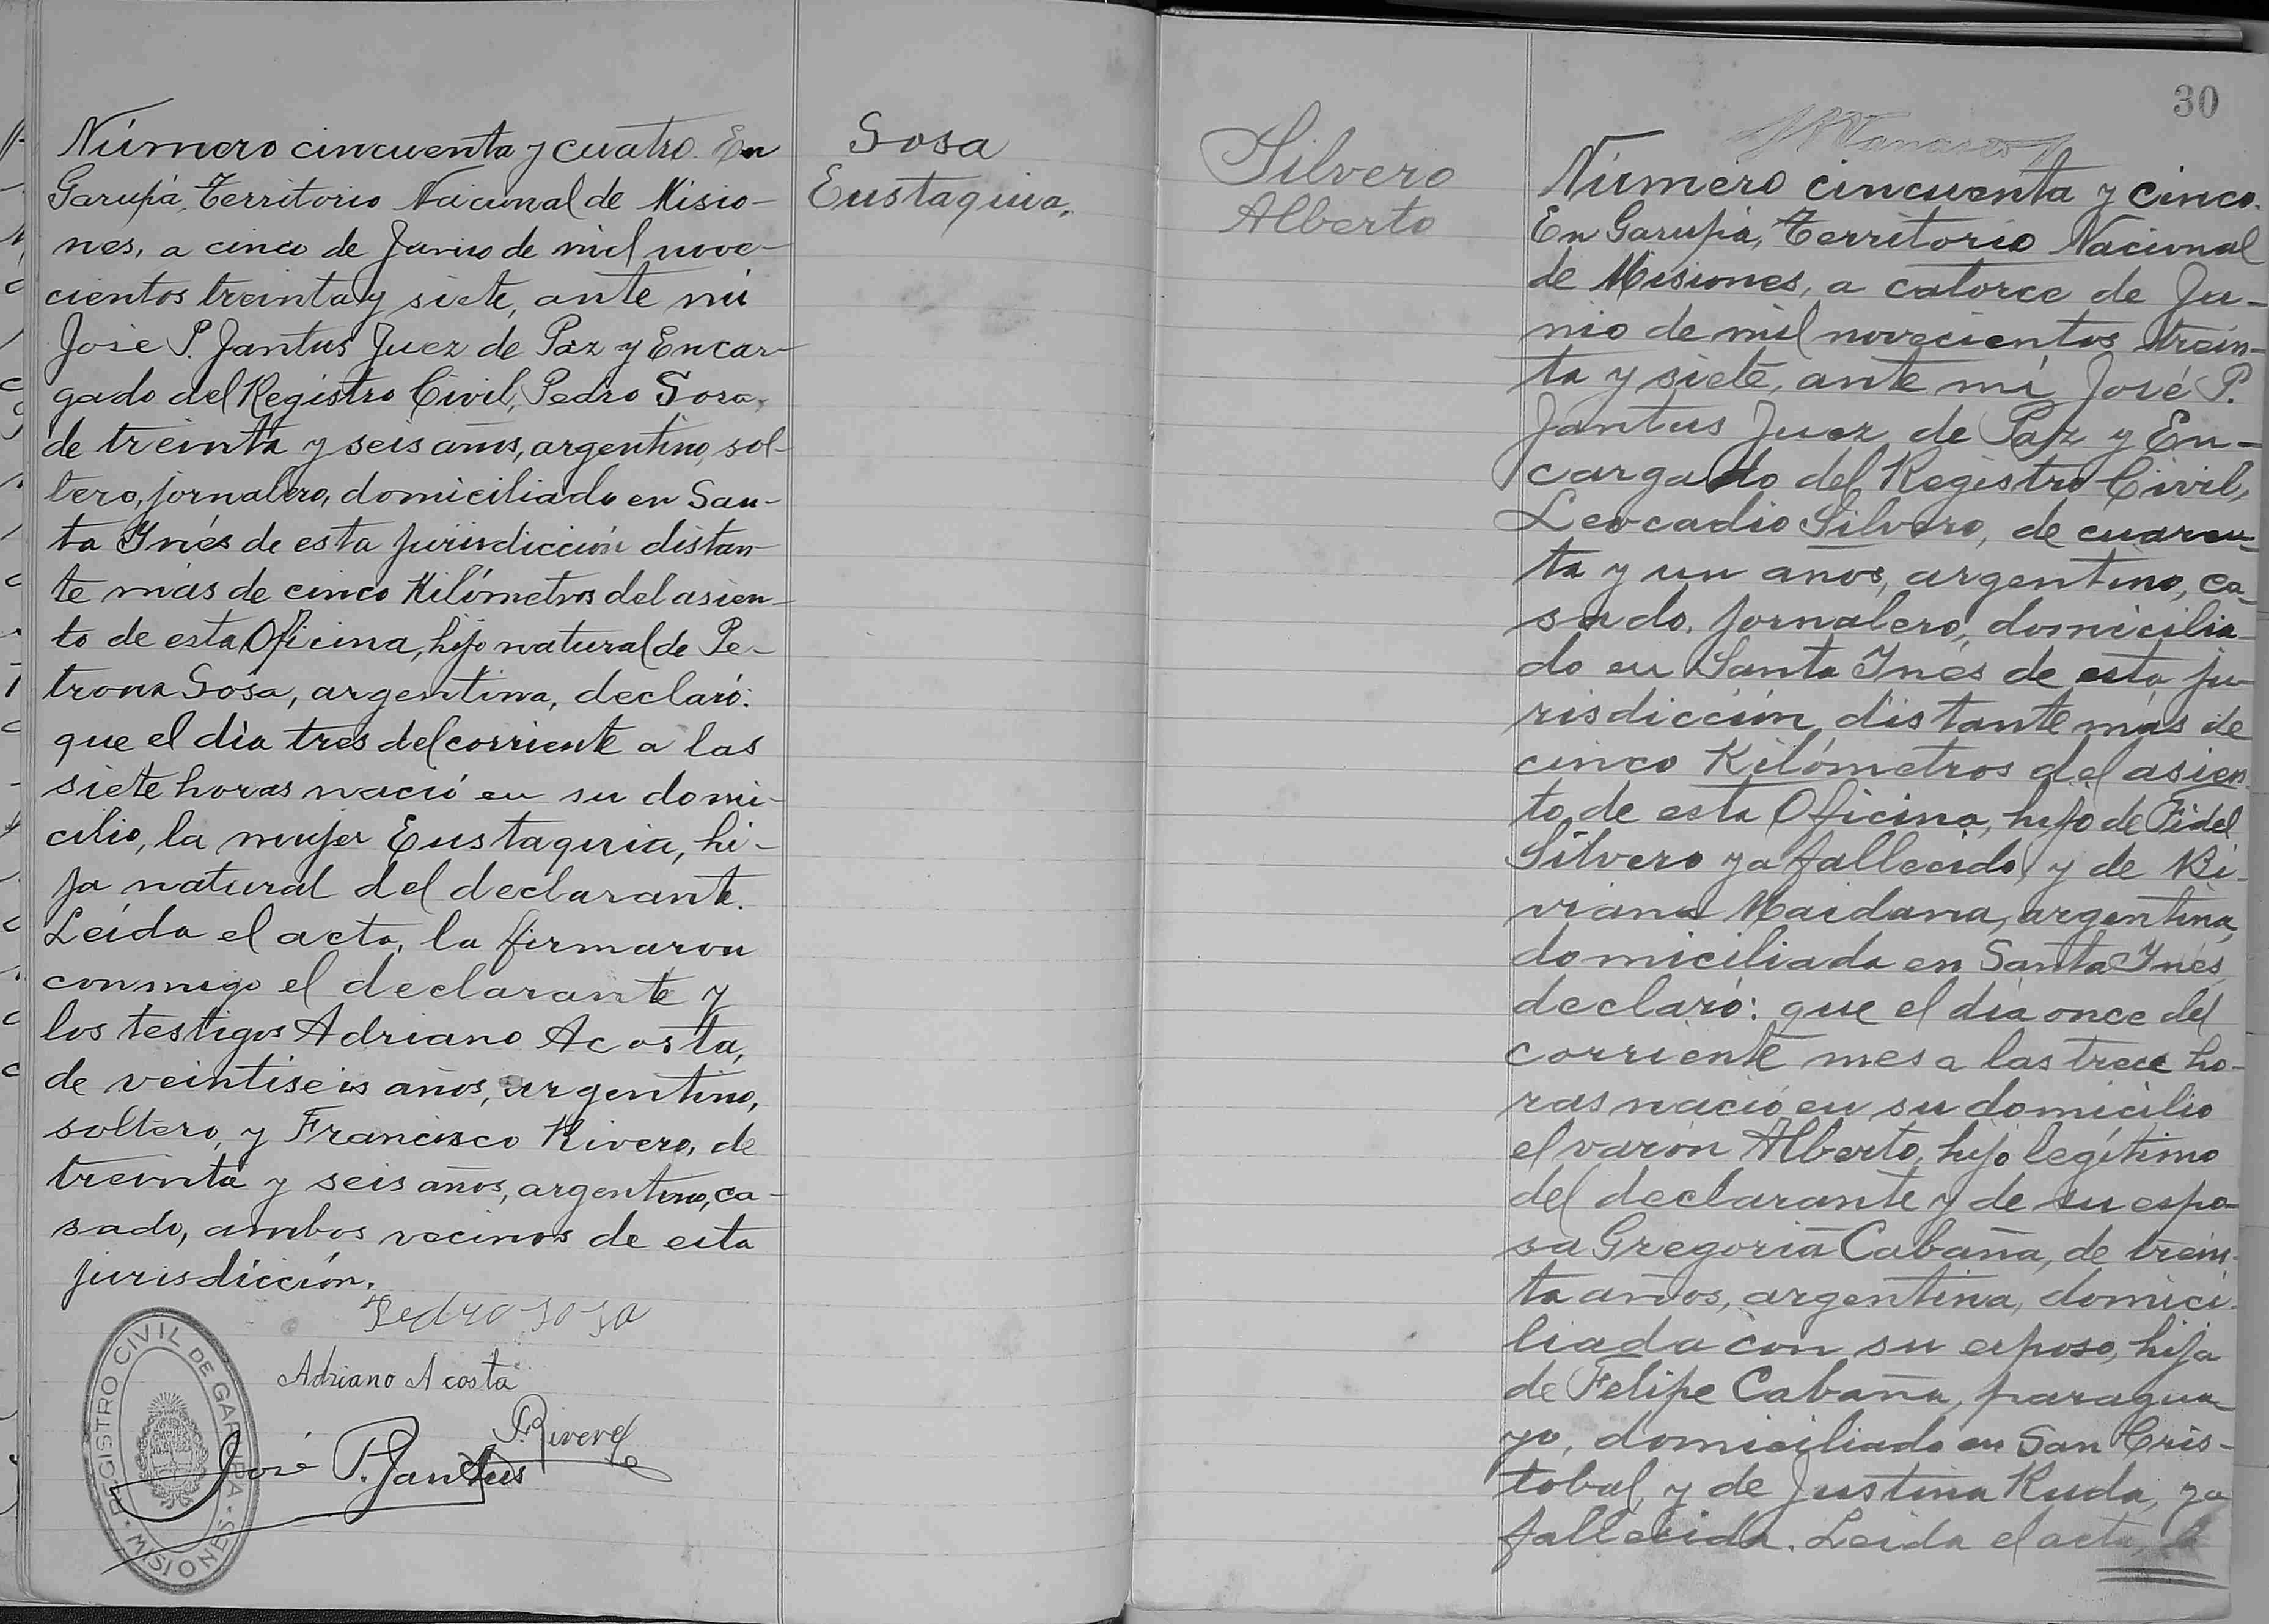 Número cincuenta y cuatro. En
Garupá, Territorio Nacional de Misio-
nes, a cinco de Junio de mil nove-
cientos treinta y siete, ante mi
José P. Jantus Juez de Paz y Encar-
gado del Registro Civil, Pedro Sosa,
de treinta y seis años, argentino, sol-
tero, jornalero, domiciliado en San-
ta Inés de esta jurisdicción distan-
te más de cinco Kilómetros del asien-
to de esta Oficina, hijo natural de Pe-
trona Sosa, argentina, declaró:
que el día tres del corriente a las
siete horas nació en su domi-
cilio, la mujer Eustaquia, hi-
ja natural del declarante.
Leída el acta, la firmaron
conmigo el declarante y
los testigos Adriano Acosta,
de veintiseis años, argentino,
soltero, y Francisco Rivero, de
treinta y seis años, argentino, ca-
sado, ambos vecinos de esta
jurisdicción.
Pedro Sosa
Adriano Acosta
José P. Jantus
REGISTRO CIVIL DE GARUPA · MISIONES
Sosa
Eustaquia.
Silvero
Alberto
30
Número cincuenta y cinco.
En Garupá, Territorio Nacional
de Misiones, a catorce de Ju-
nio de mil novecientos trein-
ta y siete, ante mí José P.
Jantus Juez de Paz y En-
cargado del Registro Civil,
Leocadio Silvero, de cuaren-
ta y un años, argentino, ca-
sado, jornalero, domicilia-
do en Santa Inés de esta ju-
risdicción distante más de
cinco Kilómetros del asien-
to de esta Oficina, hijo de Fidel
Silvero ya fallecido y de Bi-
viana Maidana, argentina,
domiciliada en Santa Inés,
declaró: que el día once del
corriente mes a las trece ho-
ras nació en su domicilio
el varón Alberto, hijo legítimo
del declarante y de su espo-
sa Gregoria Cabaña, de trein-
ta años, argentina, domici-
liada con su esposo, hija
de Felipe Cabaña, paragua-
yo, domiciliado en San Cris-
tobal, y de Justina Ruda, ya
fallecida. Leída el acta, la